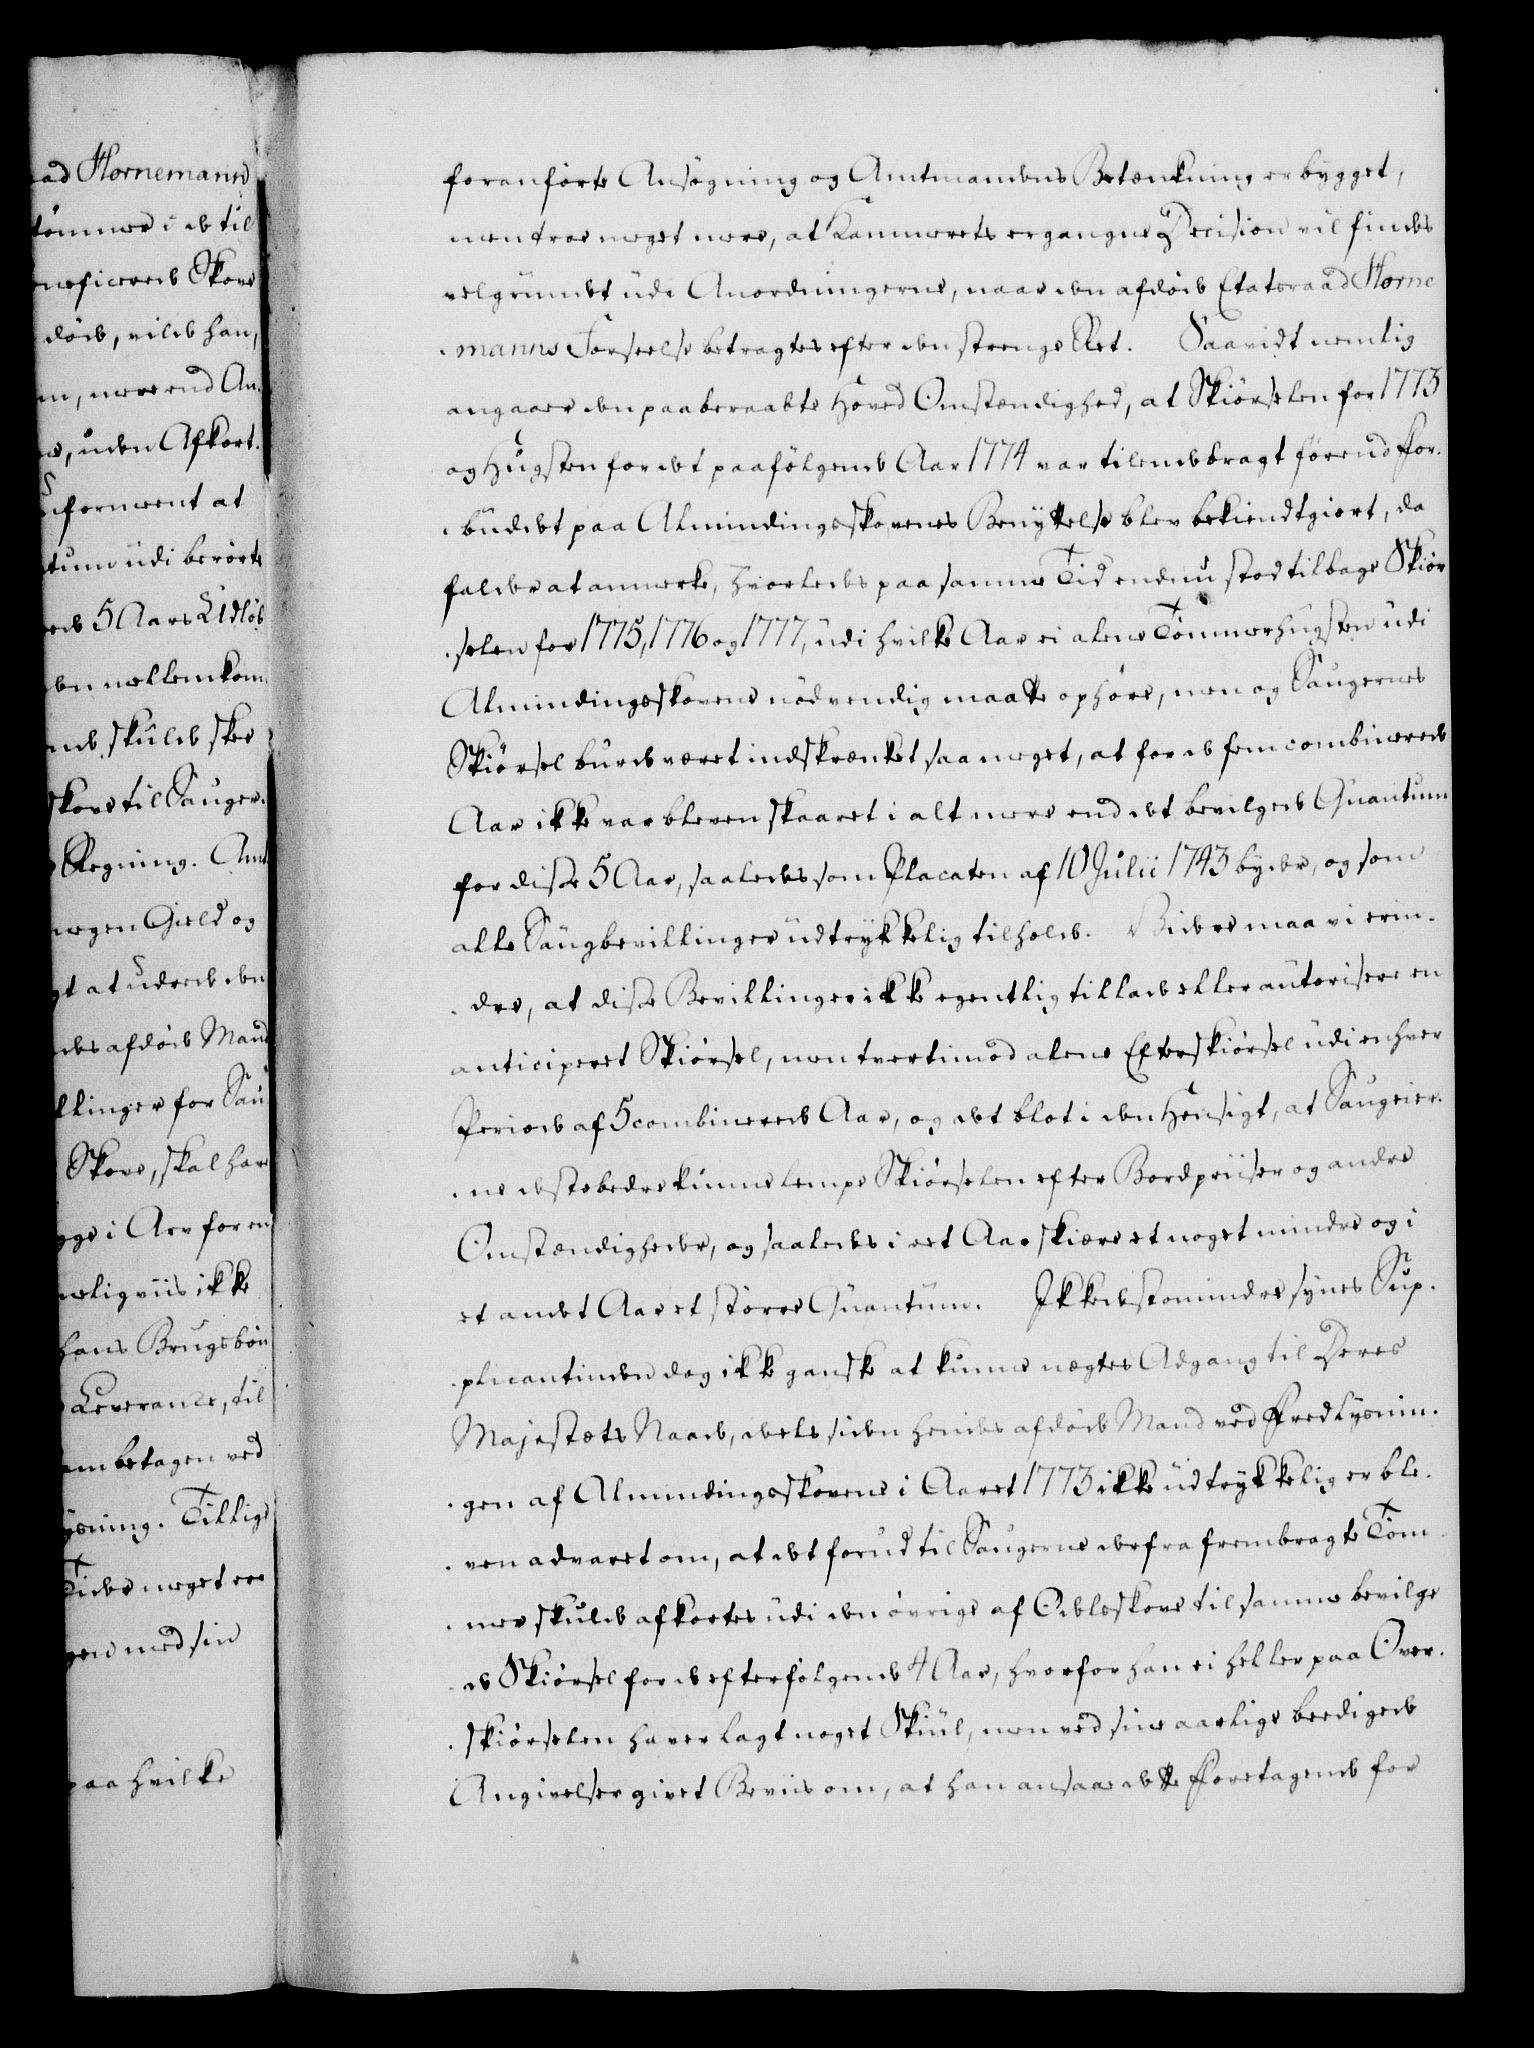 ad Hornemann
tömmer i de til
neficerede Skove
döde, vilde han,
m, mere end An-
e, uden Afkort-
formeent at
tum udi berörte
rede 5 Aars Udlöb
den mellemkom-
nde skulde skee
skove til Sauger-
Regning. Amt
megen Gield og
gt at udrede den
des afdöde Mand
llinger for Sau-
Skove, skal have
gge i Arv for en
meligviis ikke
hans Brugsbön
Leverance, til
am betagen ved
ysning. Tillige
Tider meget ere
gen med sin
paa hvilke
foranförte Ansögning og Amtmandens Betænkning er bygget,
men troe meget mere, at Kammerets ergangne Decision vil findes
velgrundet udi Anordningerne, naar den afdöde Etatsraad Horne-
manns Forseelse betragtes efter den strenge Ret. Saavidt nemlig
angaaer den paaberaabte Hoved Omstændighed, at Skiörselen for 1773
og Hugsten for det paafölgende Aar 1774 var tilendebragt förend For-
budet paa Almindingsskovenes Benyttelse blev bekiendtgiort, da
falder at anmerke, hvorledes paa samme Tid endnu stod tilbage Skiör-
selen for 1775, 1776 og 1777, udi hvilke Aar ei alene Tömmerhugsten udi
Almindingsskovene nödvendig maatte ophöre, men og Saugernes
Skiörsel burde været indskrænket saa meget, at for de fem combinerede
Aar ikke var bleven skaaret i alt mere end det bevilgede Quantum
for disse 5 Aar, saaledes som Placaten af 10 Julii 1743 byder, og som
alle Saugbevillinger udtrykkelig tilholde. Videre maa vi erin-
dre, at disse Bevillinger ikke egentlig tillade eller autorisere en
anticiperet Skiörsel, men tvertimod alene Efterskiörsel udi enhver
Periode af 5 combinerede Aar, og det blot i den Hensigt, at Saugeier-
ne desto bedre kunne lempe Skiörselen efter Bordpriiser og andre
Omstændigheder, og saaledes i eet Aar skiære et noget mindre og i
et andet Aar et större Quantum. Ikke desto mindre synes Sup-
plicantinden dog ikke ganske at kunne nægtes Adgang til Deres
Majestæts Naade, deels siden hendes afdöde Mand ved Fredlysnin-
gen af Almindingsskovene i Aaret 1773 ikke udtrykkelig er ble-
ven advaret om, at det forud til Saugerne derfra frembragte Töm-
mer skulde afkortes udi den övrige af Odelsskove til samme bevilge-
de Skiörsel for de efterfölgende 4 Aar, hvorfor han ei heller paa Over-
skiörselen haver lagt noget Skiul, men ved sine aarlige beedigede
Angivelser givet Beviis om, at han ansaae dette Foretagende for